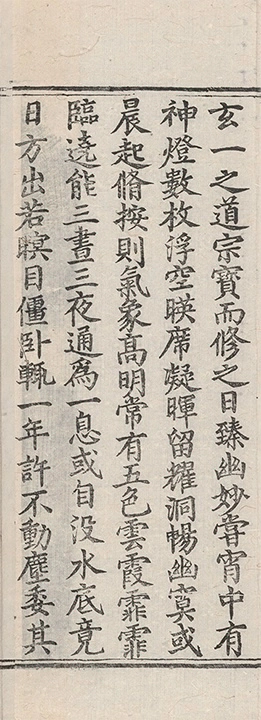 玄一之道宗寶而修之日臻幽妙甞宵中有
神燈數枚浮空暎席凝暉留耀洞暢幽寞或
晨起脩按則氣象髙明常有五色雲霞霏霏
臨遶能三晝三夜通爲一息或自没水底竟
日方出若瞑目僵卧輙一年許不動塵委其